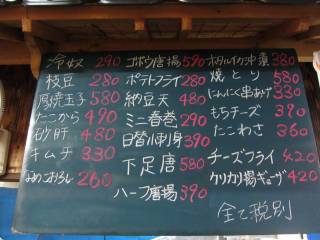 冷奴 290
枝豆 280
厚焼玉子 580
たこから 490
砂肝 480
キムチ 330
なめこおろし 260
ゴボウ唐揚 590
ポテトフライ 280
納豆天 480
ミニ春巻 290
日替小刺身 390
下足唐 580
ハーフ唐揚 390
ホタルイカ沖漬 380
焼とり 580
にんにく串あげ 330
もちチーズ 390
たこわさ 360
チーズフライ 420
クリカリ揚ギョーザ 420
全て税別